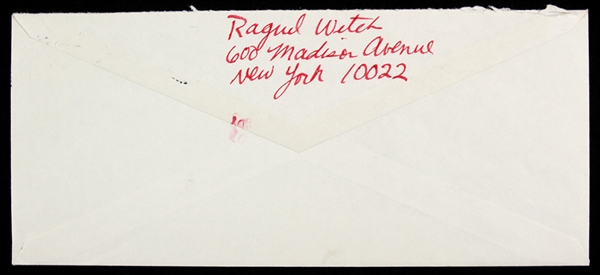 Raquel Welch
600 Madison Avenue
New York 10022